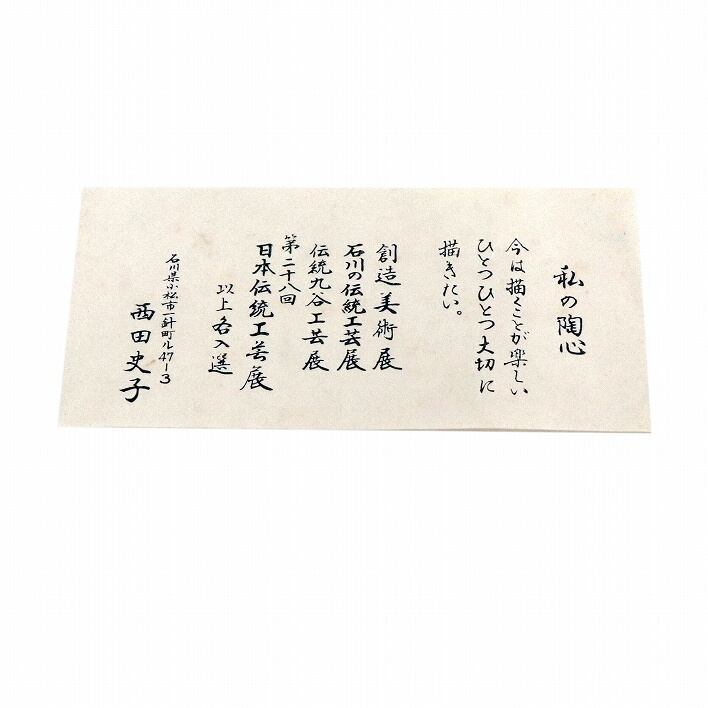 私の陶心
今は描くことが楽しい
ひとつひとつ大切に
描きたい。
創造美術展
石川の伝統工芸展
伝統九谷工芸展
第二十八回
日本伝統工芸展
以上各入選
石川県小松市一針町ル47-3
西田史子